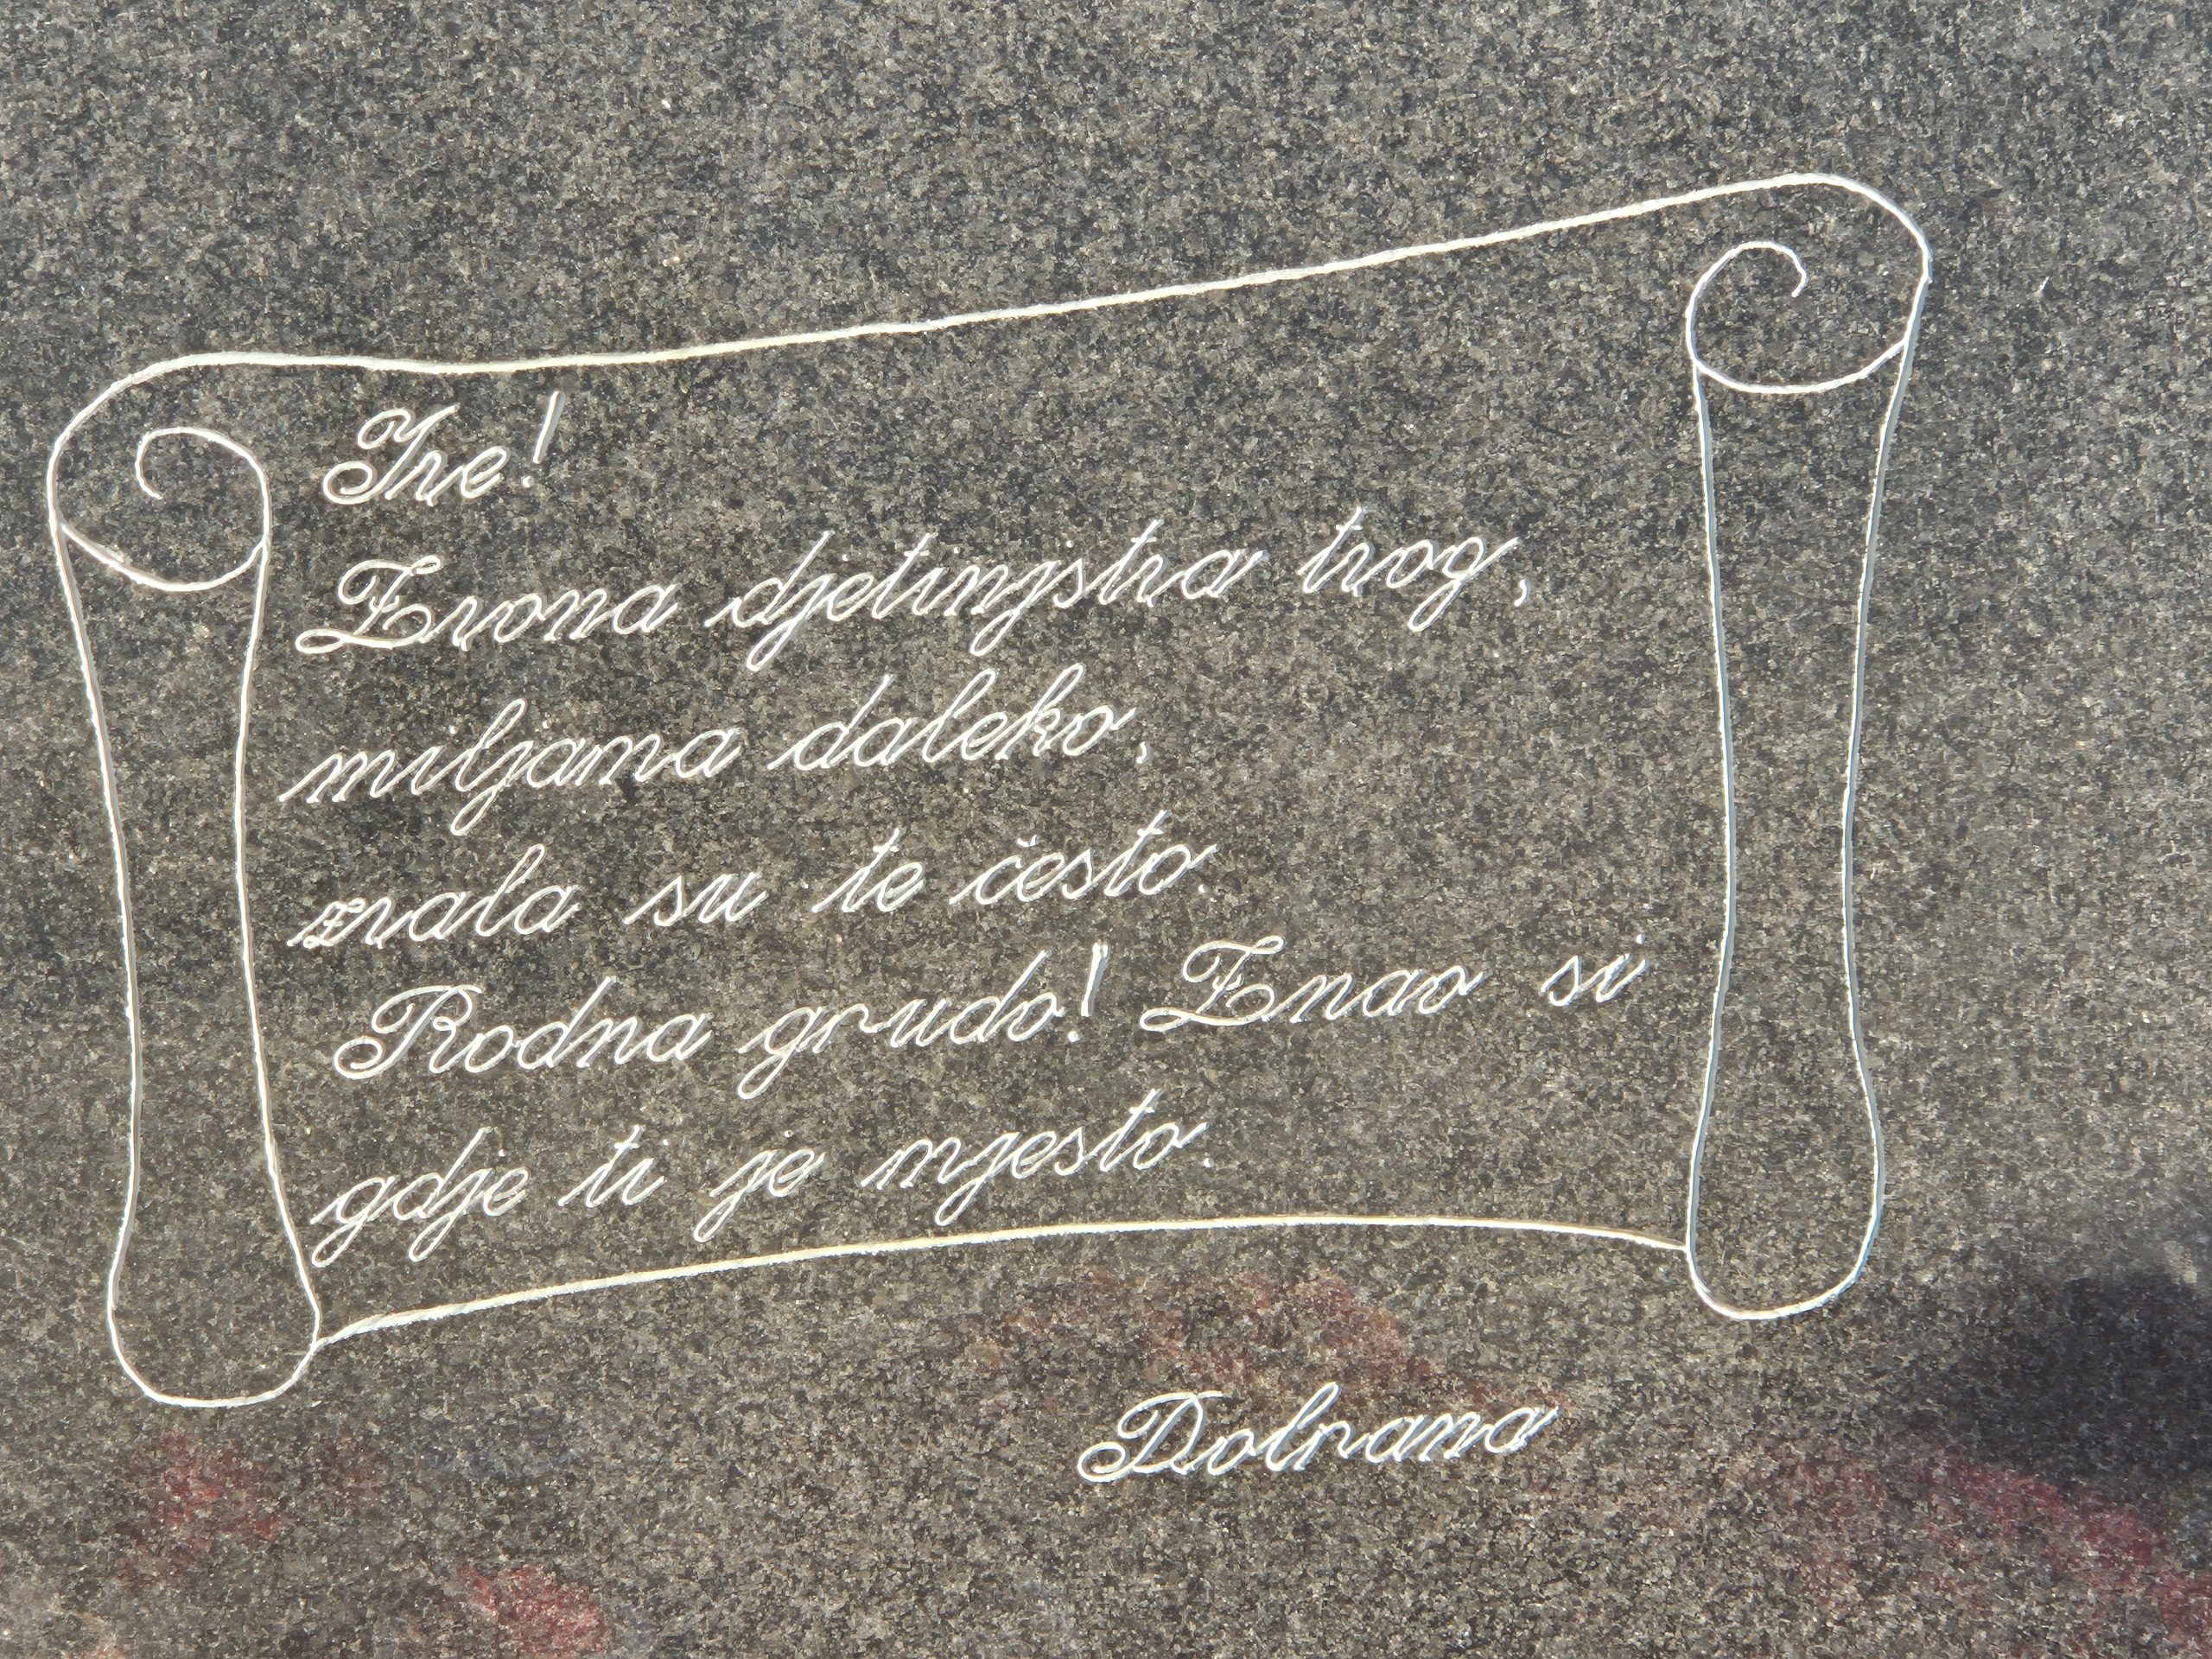 Ive!
Zvona djetinjstva tvog,
miljama daleko,
zvala su te često.
Rodna grudo! Znao si
gdje ti je mjesto.
Dolnana